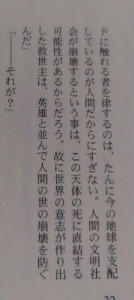 ドに触れる者を律するのは、たんに今の地球を支配
しているのが人間だからにすぎない。人間の文明社
会が崩壊するという事は、この天体の死に直結する
可能性があるからだろう。故に世界の意志が作り出
した救世主は、英雄と並んで人間の世の崩壊を防ぐ
んだ」
「――それが?」